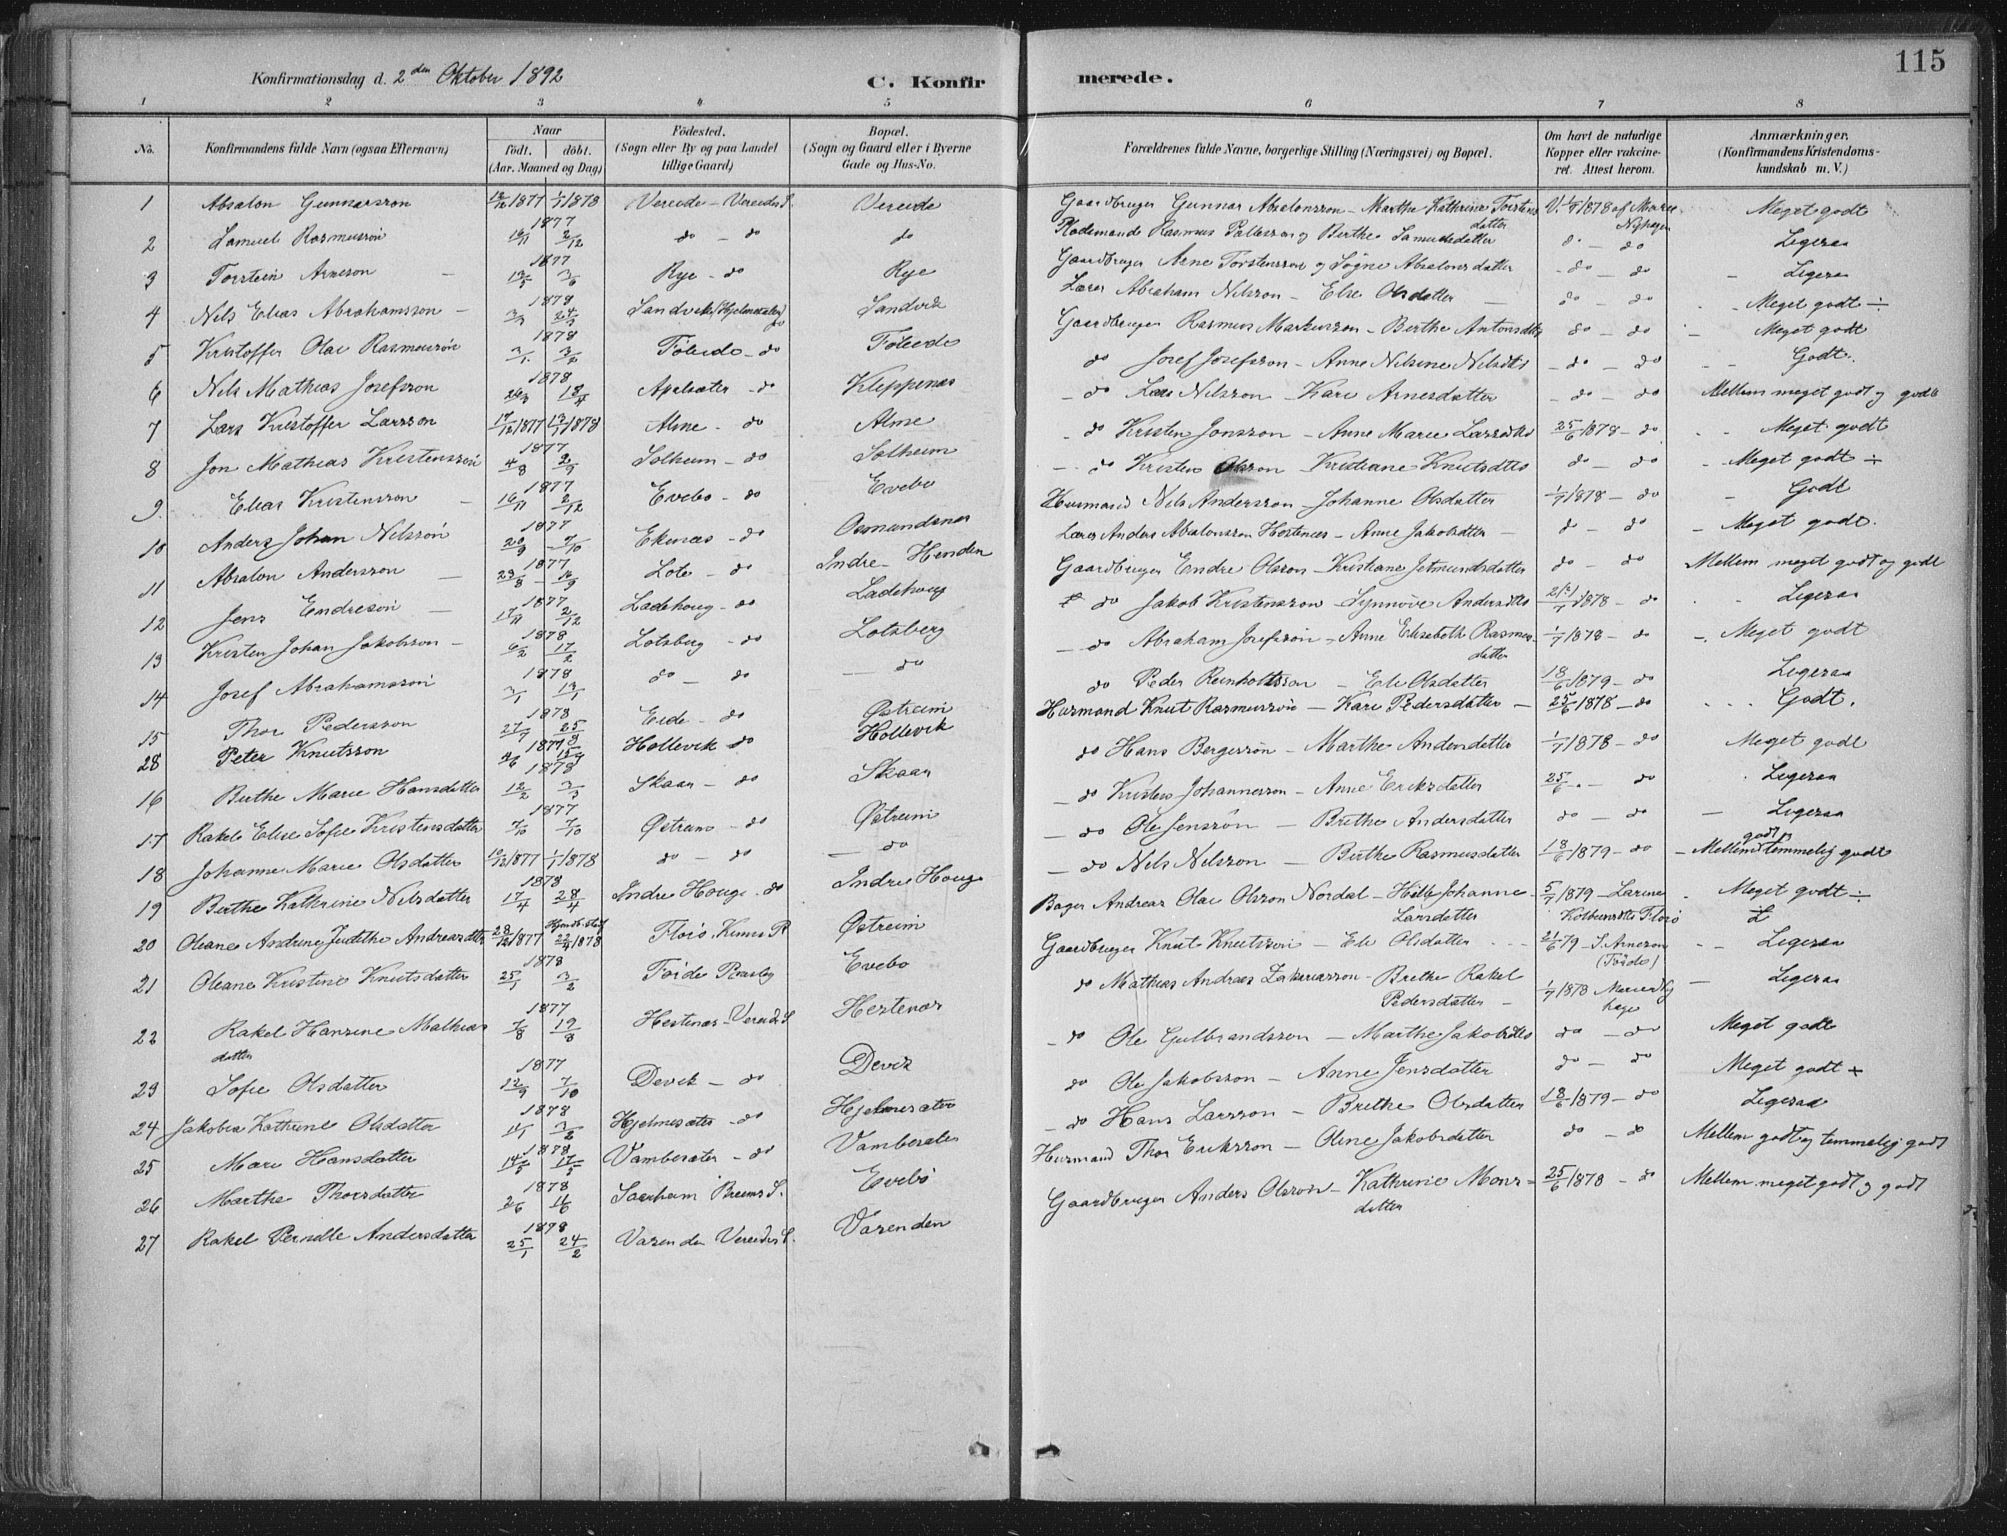 Konfirmationsdag d. 2den Oktober 1892
C. Konfirmerede.
115
1 2 3 4 5 6 7 8
No. Konfirmandens fulde Navn (ogsaa Efternavn) Naar födt. döbt. (Aar, Maaned og Dag) Födested. (Sogn eller By og paa Landet tillige Gaard) Bopæl. (Sogn og Gaard eller i Byerne Gade og Hus-No. Forældrenes fulde Navne, borgerlige Stilling (Næringsvei) og Bopæl. Om havt de naturlige Kopper eller vakcineret. Attest herom. Anmærkninger. (Konfirmandens Kristendomskundskab m. V.)
1 Absalon Gunnarsson 1/1 1878 Vereide - Vereides S. Vereide Gaardbruger Gunnar Absalonsson - Marthe Kathrine Torstensdatter V. 1/7 1878 af Marie Nyhagen Meget godt
2 Samuel Rasmussön 1877 16/11 2/12 do - do do Rasmus Pallesson og Berthe Samuelsdatter do - do Ligesaa
3 Torstein Arneson 1877 13/5 3/6 Rye - do Rye Gaardbruger Arne Torstensson og Signe Absalonsdatter do - do Ligesaa
4 Nils Elias Abrahamsson 1878 3/3 24/3 Sandvik (Hjelmesæter) do Sandvik Lærer Abraham Nilsson - Else Olsdatter do - do Meget godt ÷
5 Kristoffer Olai Rasmussön 1878 3/1 3/2 Föleide - do Föleide Gaardbruger Rasmus Markusson - Berthe Antonsdtr do - do Meget godt
6 Nils Mathias Josefsson 1878 26/3 18/4 Apalsæter - do Kleppenæs do Josef Josefsson - Anne Nilsine Nilsdtr do - do Godt.
7 Lars Kristoffer Larsson 17/12 1877 13/1 1878 Alme - do Alme do Lars Nilsson - Kari Arnesdatter do - do Mellem meget godt og godt
8 Jon Mathias Kristenssön 1877 4/8 2/9 Solheim - do Solheim do Kristen Jonsson - Anne Marie Larsdtr 25/6 1878 - do Meget godt
9. Elias Kristensson 1877 16/11 2/12 Evebö - do Evebö do Kristen Olsson - Kristiane Knutsdtr do - do Meget godt ÷
10 Anders Johan Nilssön 1877 20/9 7/10 Ekenæs - do Osmundsnes Husmand Nils Andersson - Johanne Olsdatter 1/7 1878 - do Godt
11 Absalon Andersson 1877 29/8 16/9 Lote - do Indre - Henden Lærer Anders Absalonsson Hestenes - Anne Jakobsdatter do - do Meget godt.
12 Jens Endresön 1877 17/11 2/12 Ladehoug - do Ladehoug Gaardbruger Endre Olsson - Kristiane Jetmundsdatter do - do Mellem meget godt og godt
13 Kristen Johan Jakobsson 1878 6/2 17/2 Lotsberg - do Lotsberg do Jakob Kristensson - Synnöve Andersdtr 1878 - do Ligesaa
14 Josef Abrahamssön 1878 3/1 13/1 do - do do do Abraham Josefssön - Anne Elisebeth Rasmusdatter 1/7 1878 - do Meget godt
15 Thor Pedersson 1878 27/7 25/8 Eide - do Østreim do Peder Reinholtsson - Eli Olsdatter 18/6 1879 - do Ligesaa
28 Peter Knutsson 1877 Hollevik do Hollevik Husmand Knut Rasmussön - Kari Pedersdatter 25/6 1878 - do Godt.
16 Birthe Marie Hansdatter 1878 12/2 3/3 Skaar - do Skaar do Hans Bergessön - Marthe Andersdatter 1/7 1878 - do Meget godt
17 Rakel Elise Sofie Kristensdatter 1877 7/10 Østreim - do Østreim do Kristen Johannesson - Anne Eriksdatter 25/6 - do Ligesaa
18 Johanne Marie Olsdatter 1877 1/1 1878 do - do do do Ole Jenssön - Brithe Andersdatter do - do Ligesaa
19 Berthe Kathrine Nilsdatter 1878 17/4 28/4 Indre Houge - do Indre Houg do Nils Nilsson - Berthe Rasmusdatter 18/6 1879 - do Mellem godt og temmelig godt
20 Oleane Andrine Judithe Andreasdtr 28/12 1877 Hjemdbt. stadf. 22/4 1878 Florö, Kinns P. Østreim Bager Andreas Olai Olsson Nordal - Johanne Larsdatter 5/7 1879 - Larine Kolbeinsdtr Florö Meget godt ÷
21 Oleane Kristine Knutsdatter 1878 25/1 3/2 Evebö Gaardbruger Knut Knutssön - Eli Olsdatter 21/6 79 - S. Arneson (Förde) Ligesaa
22 Rakel Hansine Mathiasdatter 1877 7/8 19/8 Hestenæs - Vereides S Hestenæs do Mathias Andreas Zakariasson - Brethe Rakel Pedersdatter 1/7 1878 Marie Nyhagen Ligesaa
23 Sofie Olsdatter 1877 12/9 7/10 Devik - do Devik do Ole Gulbrandsson - Marthe Jakobsdtr do - do Meget godt
24 Jakobia Kathrine Olsdatter 1878 3/2 Hjelmesæter - do Hjelmesæter do Ole Jakobsson - Anne Jensdatter do - do Meget godt
25 Mari Hansdatter 1878 14/5 Vambesæter - do Vambesæter do Hans Larsson - Brethe Olsdatter 18/6 1879 - do Ligesaa
26 Marthe Thorsdatter 1878 2/6 16/6 Breims S. Evebö Husmand Thor Eriksson - Oline Jakobsdatter do - do Mellem godt og temmelig godt
27 Rakel Pernelle Andersdatter 1878 25/1 24/2 Varenden Vereides S. Varenden Gaardbruger Anders Olssön - Kathrine Monsdatter 25/6 1878 - do Mellem meget godt og godt